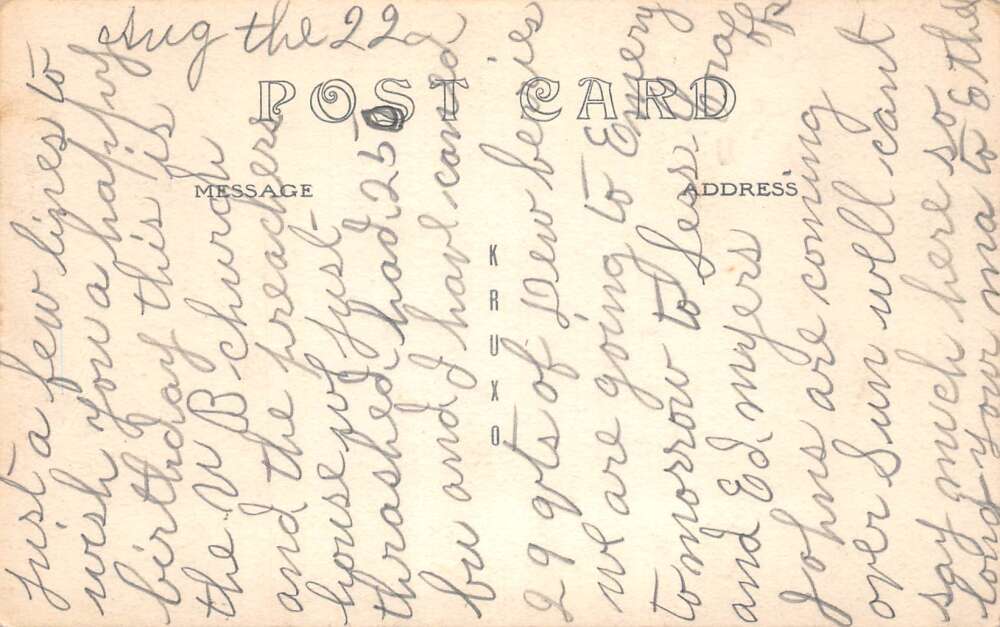 Aug the 22
POST CARD
MESSAGE
ADDRESS
KRUXO
just a few lines to
wish you a happy
birthday this is
the U B church
and the preachers
house we just
thrashed had 250
bu and I have caned
29 qts of Dew beries
we are going to Emery
tomorrow to Less
and Ed myers
Johns are coming
over Sun well cant
say much here so
long your ma to Ethe